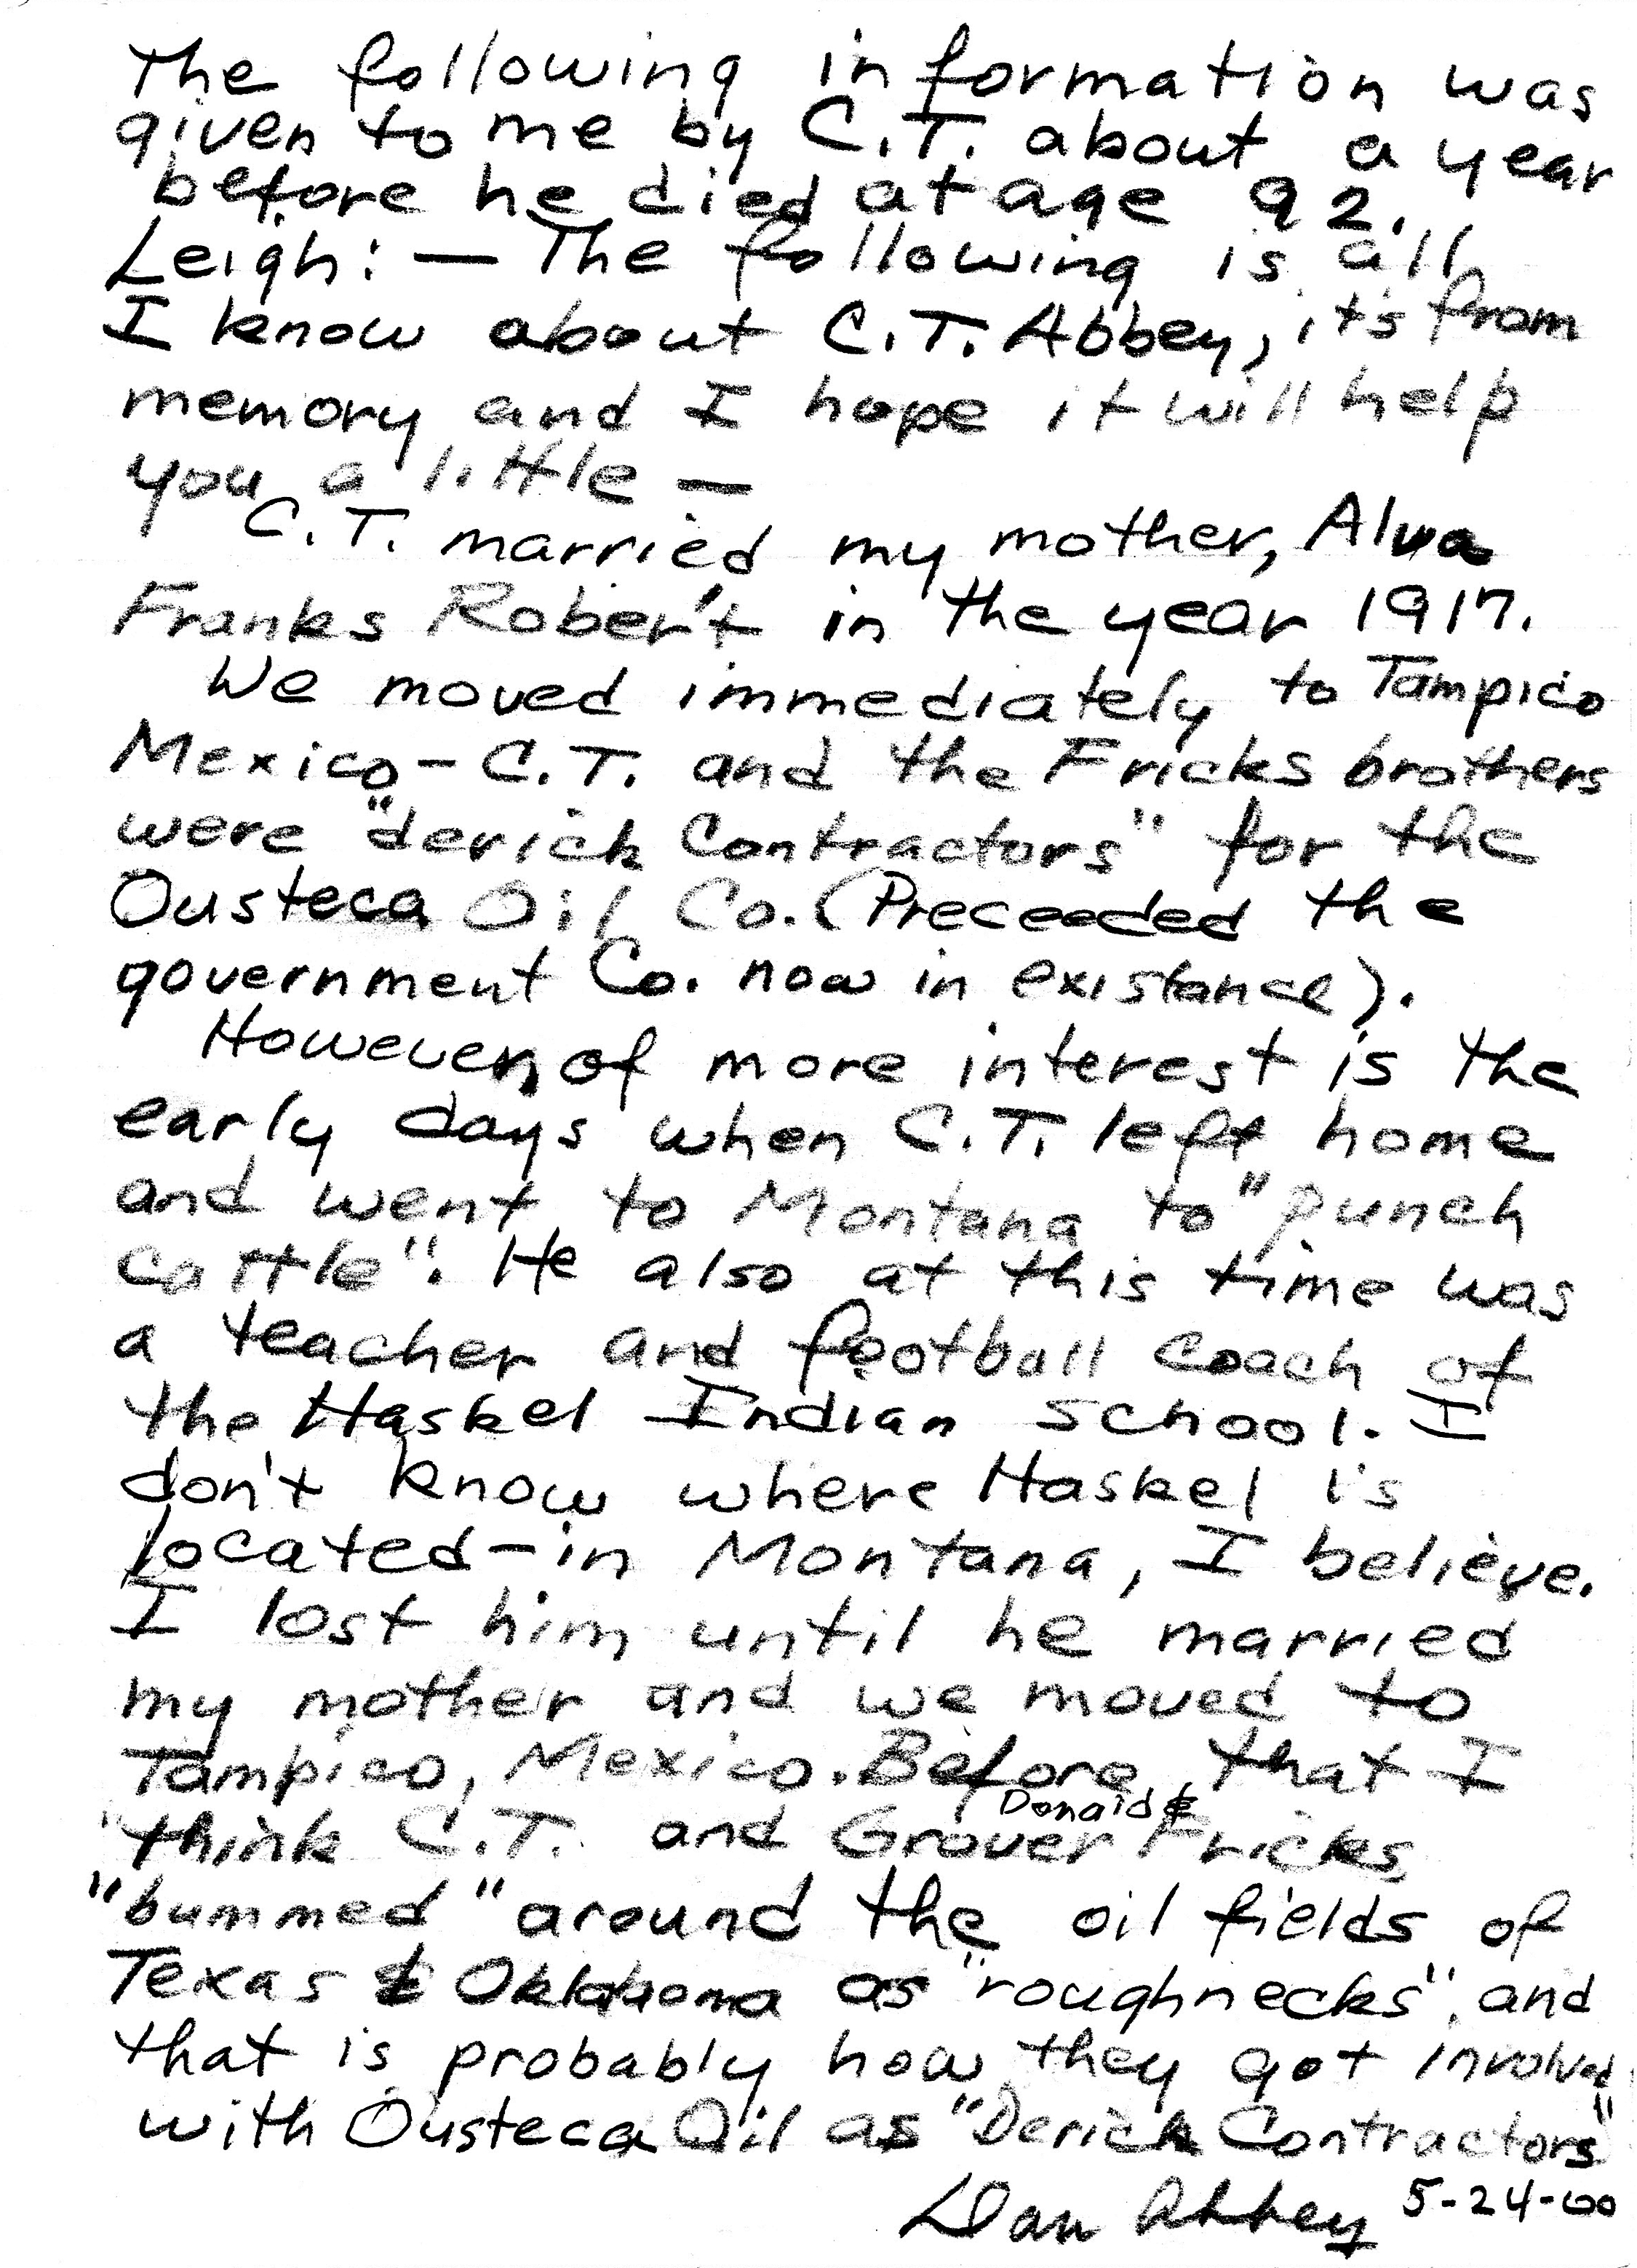 The following information was
given to me by C.T. about a year
before he died at age 92.
Leigh: — The following is all
I know about C.T. Abbey, it's from
memory and I hope it will help
you a little —
C.T. married my mother, Alva
Franks Robert in the year 1917.
We moved immediately to Tampico
Mexico - C.T. and the Fricks brothers
were "derick Contractors" for the
Ousteca Oil Co. (Preceeded the
government Co. now in existance).
However, of more interest is the
early days when C.T. left home
and went to Montana to "punch
cattle". He also at this time was
a teacher and football coach of
the Haskel Indian School. I
don't know where Haskel is
located - in Montana, I believe.
I lost him until he married
my mother and we moved to
Tampico, Mexico. Before that I
Donald &
think C.T. and Grover Fricks
"bummed" around the oil fields of
Texas & Oklahoma as "roughnecks", and
that is probably how they got involved
with Ousteca Oil as "Derick Contractors"
Dan Abbey 5-24-00